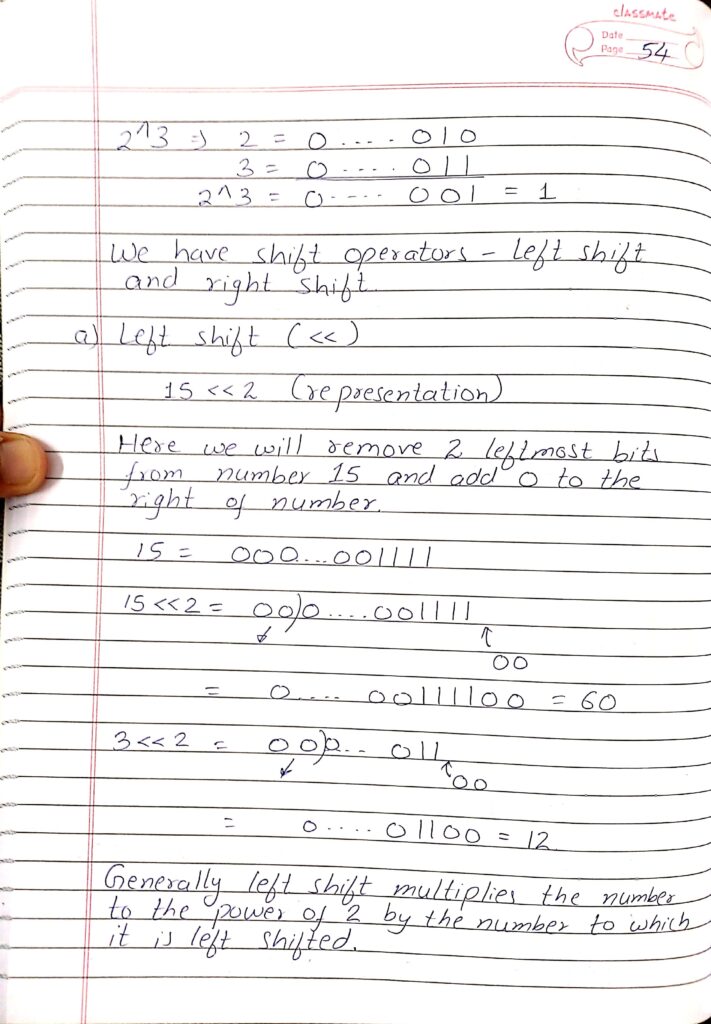 classmate
Date
Page 54
2^3 => 2 = 0 .... 010
3 = 0 .... 011
2^3 = 0 .... 001 = 1
We have shift operators - left shift
and right shift.
a) Left shift (<<)
15 << 2 (representation)
Here we will remove 2 leftmost bits
from number 15 and add 0 to the
right of number.
15 = 000...001111
15 << 2 = 00)0 ....001111
↓ ↑
00
= 0.... 00111100 = 60
3 << 2 = 00)0... 011
↓ ↑00
= 0.... 01100 = 12
Generally left shift multiplies the number
to the power of 2 by the number to which
it is left shifted.